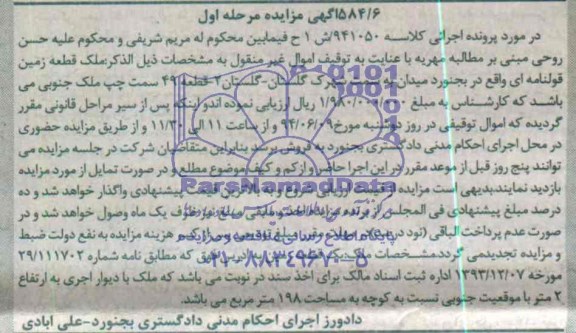 ۵۸۴/۶آگهی مزایده مرحله اول
در مورد پرونده اجرائی کلاسه ۹۴۱۰۵۰/ش ۱ ح فیمابین محکوم له مریم شریفی و محکوم علیه حسن
روحی مبنی بر مطالبه مهریه با عنایت به توقیف اموال غیر منقول به مشخصات ذیل الذکر:ملک قطعه زمین
قولنامه ای واقع در بجنورد میدان شهرک گلستان-گلستان۲-قطعه ۴۹ سمت چپ ملک جنوبی می
باشد که کارشناس به مبلغ ریال ارزیابی نموده اندو اینکه پس از سیر مراحل قانونی مقرر
گردیده که اموال توقیفی در روز دوشنبه مورخ ۹۴/۰۶/۰۹ و از ساعت ۱۱ الی ۱۱/۳۰ و از طریق مزایده حضوری
در محل اجرای احکام مدنی دادگستری بجنورد به فروش برسد بنابراین متقاضیان شرکت در جلسه مزایده می
توانند پنج روز قبل از موعد مقرر در این اجرا حاضر و از کم و کیف موضوع مطلع و در صورت تمایل از مورد مزایده
بازدید نمایند.بدیهی است مزایده از قیمت پیشنهادی واگذار خواهد شد و ده
درصد مبلغ پیشنهادی فی المجلس از برنده مزایده ظرف یک ماه وصول خواهد شد و در
صورت عدم پرداخت الباقی هزینه مزایده به نفع دولت ضبط
و مزایده تجدیدمی گردد.مشخصات که مطابق نامه شماره ۲۹/۱۱۱۷۰۲
مورخه ۱۳۹۳/۱۲/۰۷ اداره ثبت اسناد مالک برای اخذ سند در نوبت می باشد که ملک با دیوار اجری به ارتفاع
۲ متر با موقعیت جنوبی نسبت به کوچه به مساحت ۱۹۸ متر مربع می باشد.
دادورز اجرای احکام مدنی دادگستری بجنورد-علی آبادی
ParsNamadData
۰۲۱-۸۸۳۴۹۶۷۰-۵